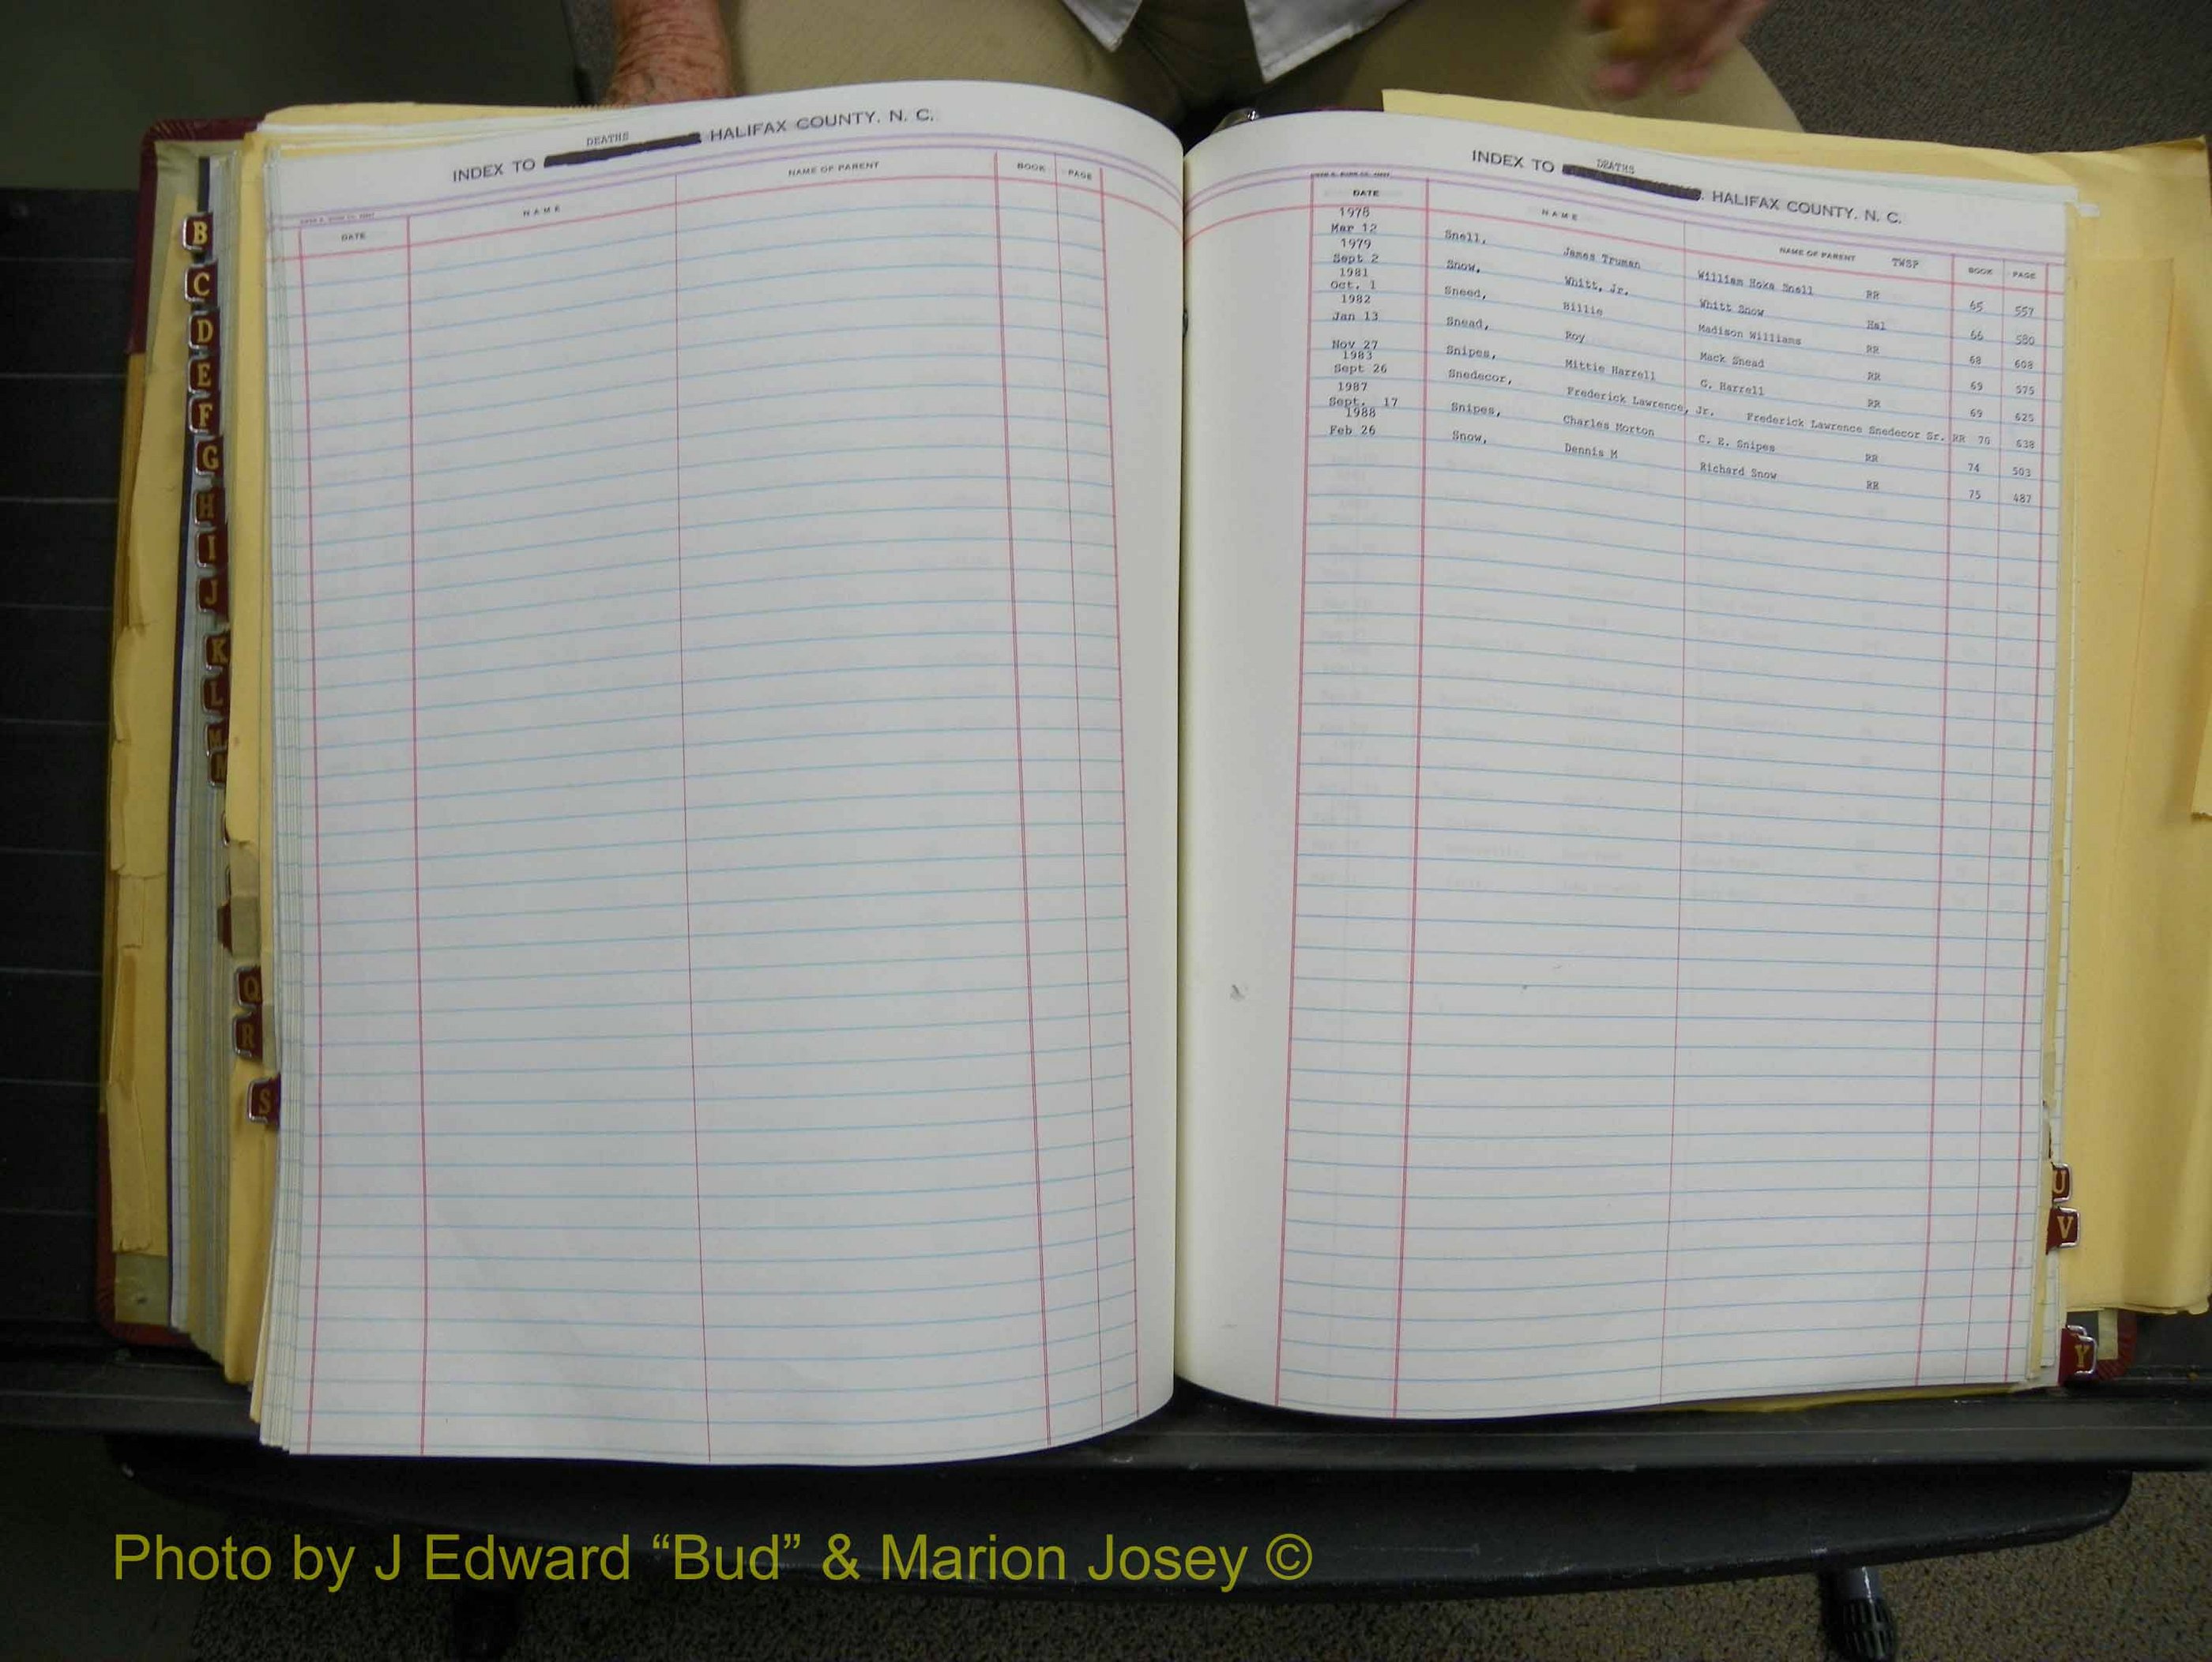 DEATHS
INDEX TO HALIFAX COUNTY, N. C.
DATE NAME NAME OF PARENT BOOK PAGE
DEATHS
INDEX TO HALIFAX COUNTY, N. C.
DATE NAME NAME OF PARENT TWSP BOOK PAGE
1978
Mar 12 Snell, James Truman William Hoke Snell RR 65 557
1979
Sept 2 Snow, Whitt, Jr. Whitt Snow Hal 66 580
1981
Oct. 1 Sneed, Billie Madison Williams RR 68 608
1982
Jan 13 Snead, Roy Mack Snead RR 69 575
Nov 27 Snipes, Mittie Harrell G. Harrell RR 69 625
1983
Sept 26 Snedecor, Frederick Lawrence, Jr. Frederick Lawrence Snedecor Sr. RR 70 638
1987
Sept. 17 Snipes, Charles Morton C. E. Snipes RR 74 503
1988
Feb 26 Snow, Dennis M Richard Snow RR 75 487
B
C
D
E
F
G
H
I
J
K
L
M
Q
R
S
U
V
Y
Photo by J Edward “Bud” & Marion Josey ©